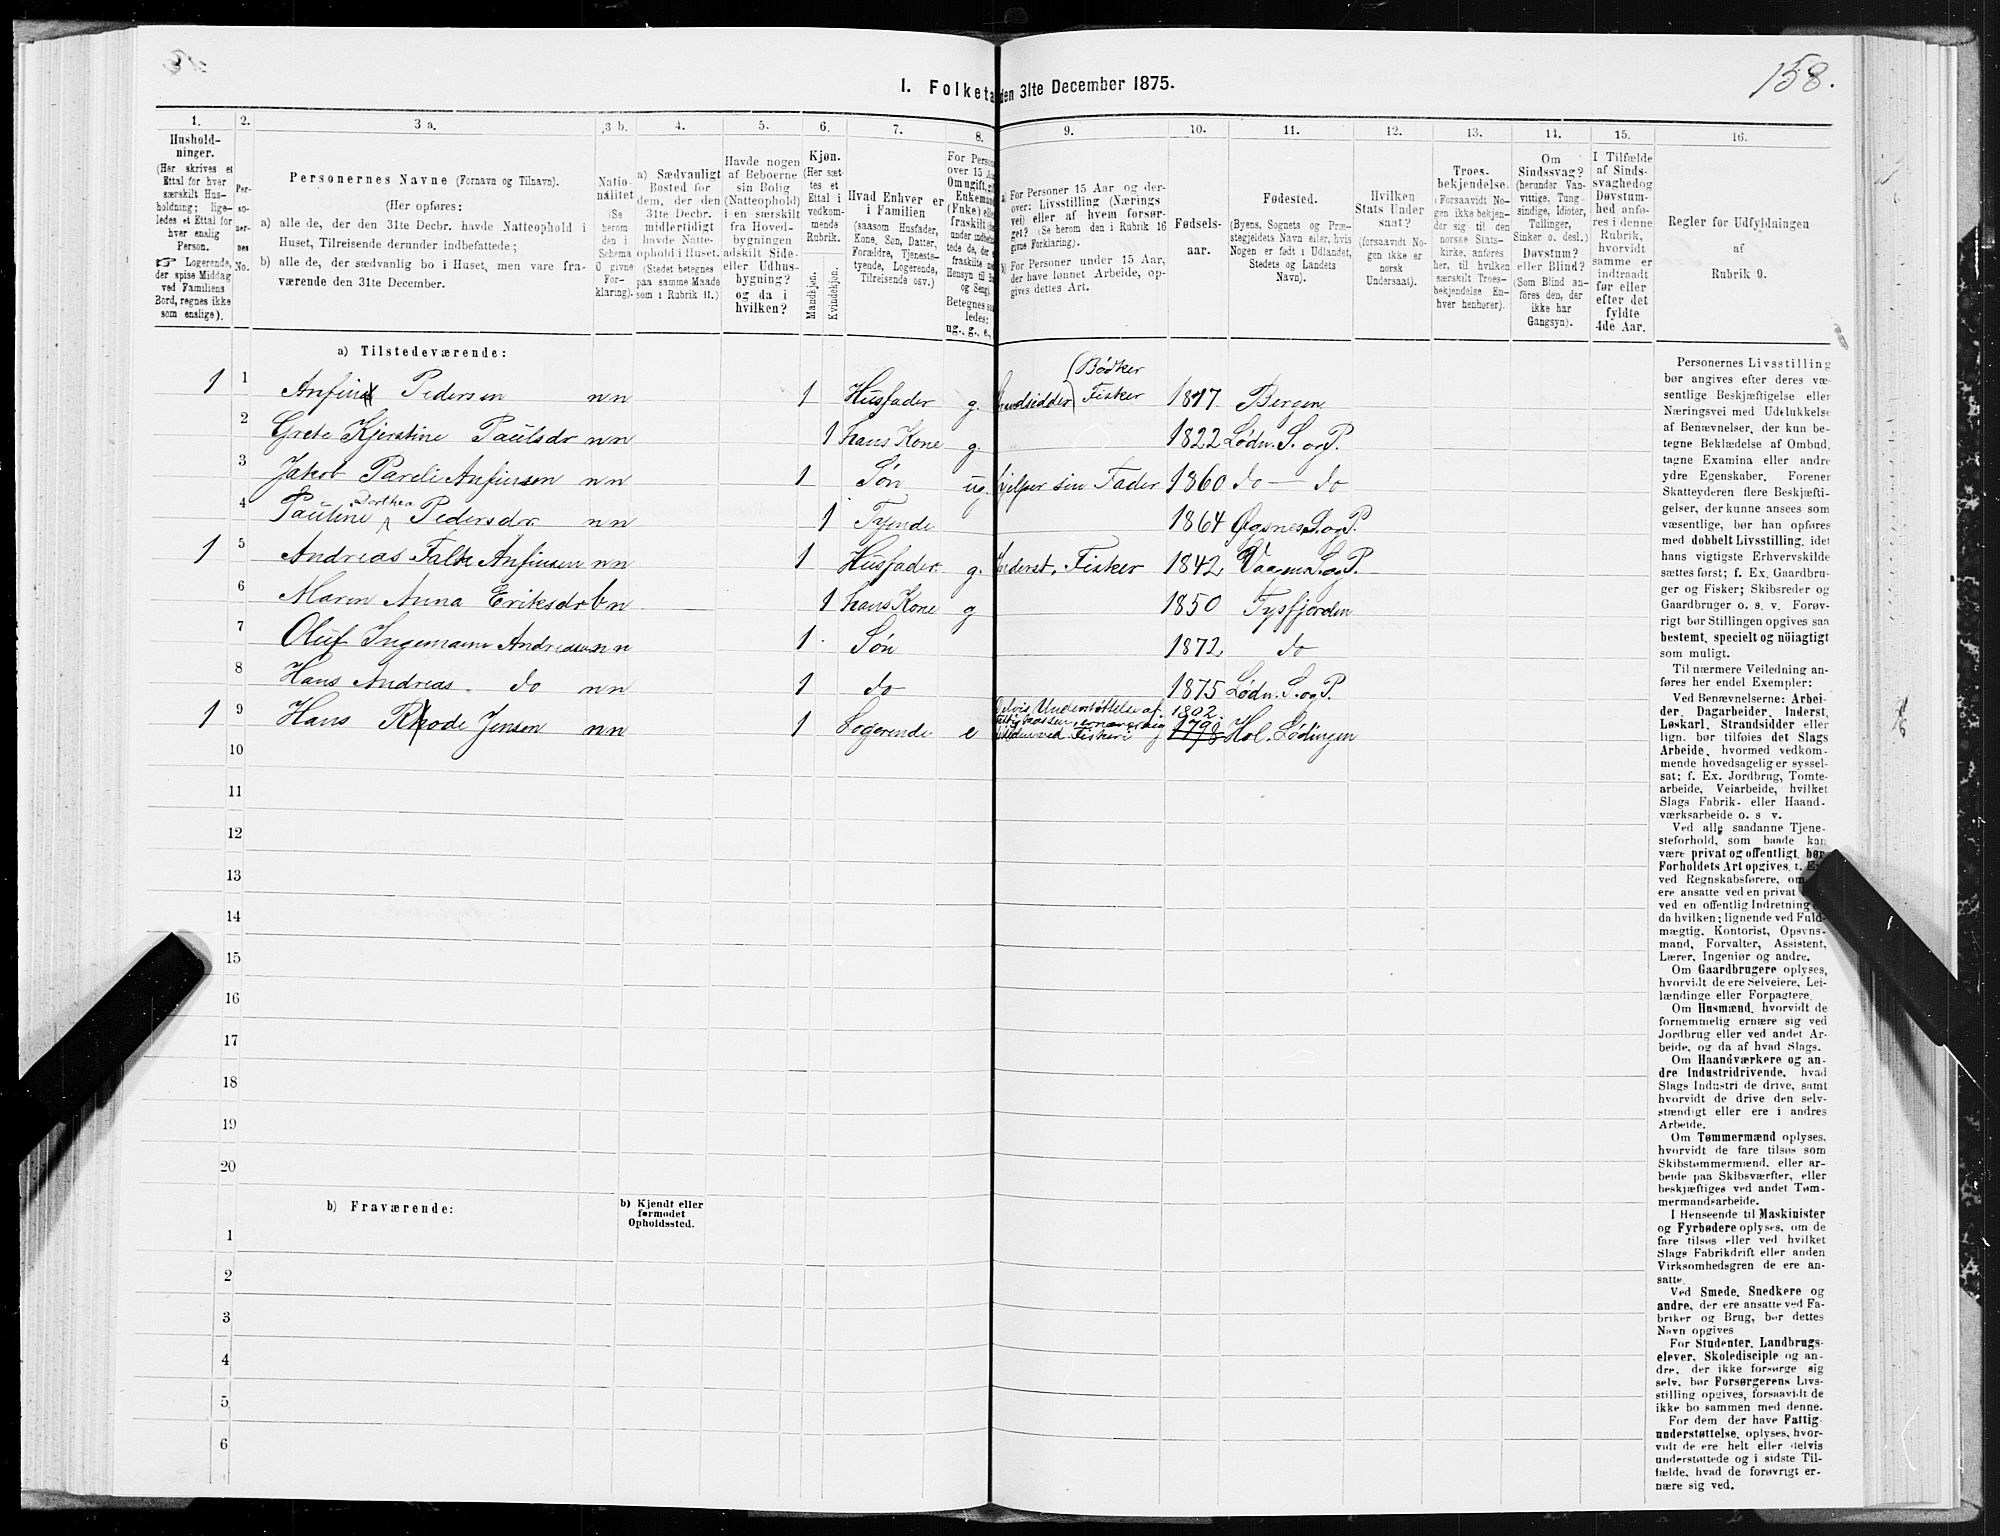 158.
I. Folketa den 31te December 1875.
1. 2. 3 a. 3 b. 4. 5. 6. 7. 8. 9. 10. 11. 12. 13. 14. 15. 16.
Hushold-
ninger.
(Her skrives et
Ettal for hver
særskilt Hus-
holdning; lige-
ledes et Ettal for
hver enslig
Person.
☞ Logerende,
der spise Middag
ved Familiens
Bord, regnes ikke
som enslige).
Per-
so-
ner-
nes
No.
Personernes Navne (Fornavn og Tilnavn).
(Her opføres:
a) alle de, der den 31te Decbr. havde Natteophold i
Huset, Tilreisende derunder indbefattede;
b) alle de, der sædvanlig bo i Huset, men vare fra-
værende den 31te December.
Natio-
nalitet
(Se
herom
den i
Schema
O givne
For-
klaring).
a) Sædvanligt
Bosted for
dem, der den
31te Decbr.
midlertidigt
havde Natte-
ophold i Huset.
(Stedet betegnes
paa samme Maade
som i Rubrik 11.)
Havde nogen
af Beboerne
sin Bolig
(Natteophold)
i en særskilt
fra Hoved-
bygningen
adskilt Side-
eller Udhus-
bygning?
og da i
hvilken?
Kjøn.
(Her sæt-
tes et
Ettal i
vedkom-
mende
Rubrik.
Mandkjøn.
Kvindekjøn.
Hvad Enhver er
i Familien
(saasom Husfader,
Kone, Søn, Datter,
Forældre, Tjeneste-
tyende, Logerende,
Tilreisende osv.)
For Person
over 15 Aa
Om ugift, gi
Enkeman
(Enke) elle
fraskilt
under indbe
tede de, de
fraskilte m
Hensyn til B
og Seng).
Betegnes saa
ledes:
ug., g., e.,
a) For Personer 15 Aar og der-
over: Livsstilling (Nærings
vei) eller af hvem forsør-
get? (Se herom den i Rubrik 16
givne Forklaring).
b) For Personer under 15 Aar,
der have lønnet Arbeide, op-
gives dettes Art.
Fødsels-
aar.
Fødested.
(Byens, Sognets og Præ-
stegjeldets Navn eller, hvis
Nogen er født i Udlandet,
Stedets og Landets
Navn).
Hvilken
Stats Under
saat?
(forsaavidt No-
gen ikke er
norsk
Undersaat).
Troes-
bekjendelse.
(Forsaavidt No-
gen ikke bekjen-
der sig til den
norske Stats-
kirke, anføres
her, til hvilken
særskilt Troes-
bekjendelse En-
hver henhører).
Om
Sindssvag?
(herunder Van-
vittige, Tung-
sindige, Idioter,
Tullinger,
Sinker o. desl.)
Døvstum?
eller Blind?
(Som Blind an-
føres den, der
ikke har
Gangsyn).
I Tilfælde
af Sinds-
svaghed og
Døvstum-
hed anfø-
res i denne
Rubrik,
hvorvidt
samme er
indtraadt
før eller
efter det
fyldte
4de Aar.
Regler for Udfyldningen
af
Rubrik 9.
a) Tilstedeværende:
1 1 Anfind Pedersen nn 1 Husfader g. Strandsidder (Bødker Fisker 1817. Bergen
2 Grete Kjerstine Paulsdr nn 1 hans Kone g. 1822 Lødn. S. og P.
3 Jakob Pareli Anfinsen nn 1 Søn ug. hjelper sin Fader 1860 do — do
4 Pauline Dorthea Pedersdr nn 1 Tyende 1864 Øgsnes S. og P.
1 5 Andreas Falk Anfinsen nn 1 Husfader g. Inderst, Fisker 1842 Vaagen S. og P.
6 Maren Anna Eriksdr bn 1 hans Kone g 1850 Tysfjorden
7 Oluf Ingemann Andreasen nn 1 Søn 1872 do
8 Hans Andreas do nn 1 do 1875 Lødn. S. og P.
1 9 Hans Rhode Jensen nn 1 Logerende e Delvis Understøttelse af Fattigkassen, ernærer sig ved Fiskeri 1802 1798 Hol. Lødingen
10
11
12
13
14
15
16
17
18
19
20
b) Fraværende:
b) Kjendt eller
formodet
Opholdssted.
1
2
3
4
5
6
Personernes Livsstilling
bør angives efter deres væ-
sentlige Beskjæftigelse eller
Næringsvei med Udelukkelse
af Benævnelser, der kun be-
tegne Beklædelse af Ombud,
tagne Examina eller andre
ydre Egenskaber. Forener
Skatteyderen flere Beskjæfti-
gelser, der kunne ansees som
væsentlige, bør han opføres
med dobbelt Livsstilling, idet
hans vigtigste Erhvervskilde
sættes først; f. Ex. Gaardbru-
ger og Fisker; Skibsreder og
Gaardbruger o. s. v. Forøv-
rigt bør Stillingen opgives saa
bestemt, specielt og nöiagtigt
som muligt.
Til nærmere Veiledning an-
føres her endel Exempler:
Ved Benævnelserne: Arbei-
der, Dagarbeider, Inderst,
Løskarl, Strandsidder eller
lign. bør tilføies det Slags
Arbeide, hvormed vedkom-
mende hovedsagelig er syssel-
sat; f. Ex. Jordbrug, Tomte-
arbeide, Veiarbeide, hvilket
Slags Fabrik- eller Haand-
værksarbeide o. s. v.
Ved alle saadanne Tjene-
steforhold, som baade kan
være privat og offentligt, bør
Forholdets Art opgives, t. Ex
ved Regnskabsførere, om
ere ansatte ved en privat
ved en offentlig Indretning
da hvilken; lignende ved Fuld-
mægtig, Kontorist, Opsyns-
mand, Forvalter, Assistent,
Lærer, Ingeniør og andre.
Om Gaardbrugere oplyses,
hvorvidt de ere Selveiere, Lei-
lændinge eller Forpagtere.
Om Husmænd, hvorvidt de
fornemmelig ernære sig ved
Jordbrug eller ved andet Ar-
beide, og da af hvad Slags.
Om Haandværkere og an-
dre Industridrivende, hvad
Slags Industri de drive, samt
hvorvidt de drive den selv-
stændigt eller ere i andres
Arbeide.
Om Tømmermænd oplyses,
hvorvidt de fare tilsøs som
Skibstømmermænd, eller ar-
beide paa Skibsværfter, eller
beskjæftiges ved andet Tøm-
mermandsarbeide.
I Henseende til Maskinister
og Fyrbødere oplyses, om de
fare tilsøs eller ved hvilket
Slags Fabrikdrift eller anden
Virksomhedsgren de ere an-
satte.
Ved Smede, Snedkere og
andre, der ere ansatte ved Fa-
briker og Brug, bør dettes
Navn opgives
For Studenter, Landbrugs-
elever, Skoledisciple og an-
dre, der ikke forsørge sig
selv, bør Forsørgerens Livs-
stilling opgives, forsaavidt de
ikke bo sammen med denne.
For dem der have Fattig-
understøttelse, oplyses, hvor-
vidt de ere helt eller delvis
understøttede og i sidste Til-
fælde, hvad de forøvrigt er-
nære sig ved.